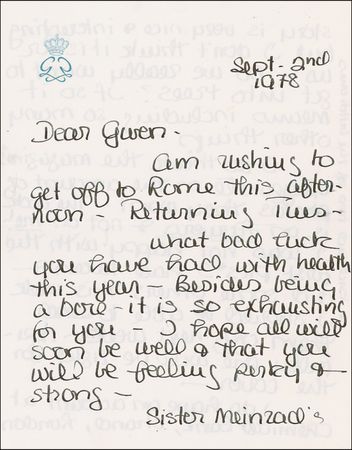 Sept - 2nd
1978
Dear Gwen -
am rushing to
get off to Rome this after-
noon - Returning Tues -
what bad luck
you have had with health
this year. Besides being
a bore it is so exhausting
for you - I hope all will
soon be well & that you
will be feeling perky &
strong -
Sister Meinrad's